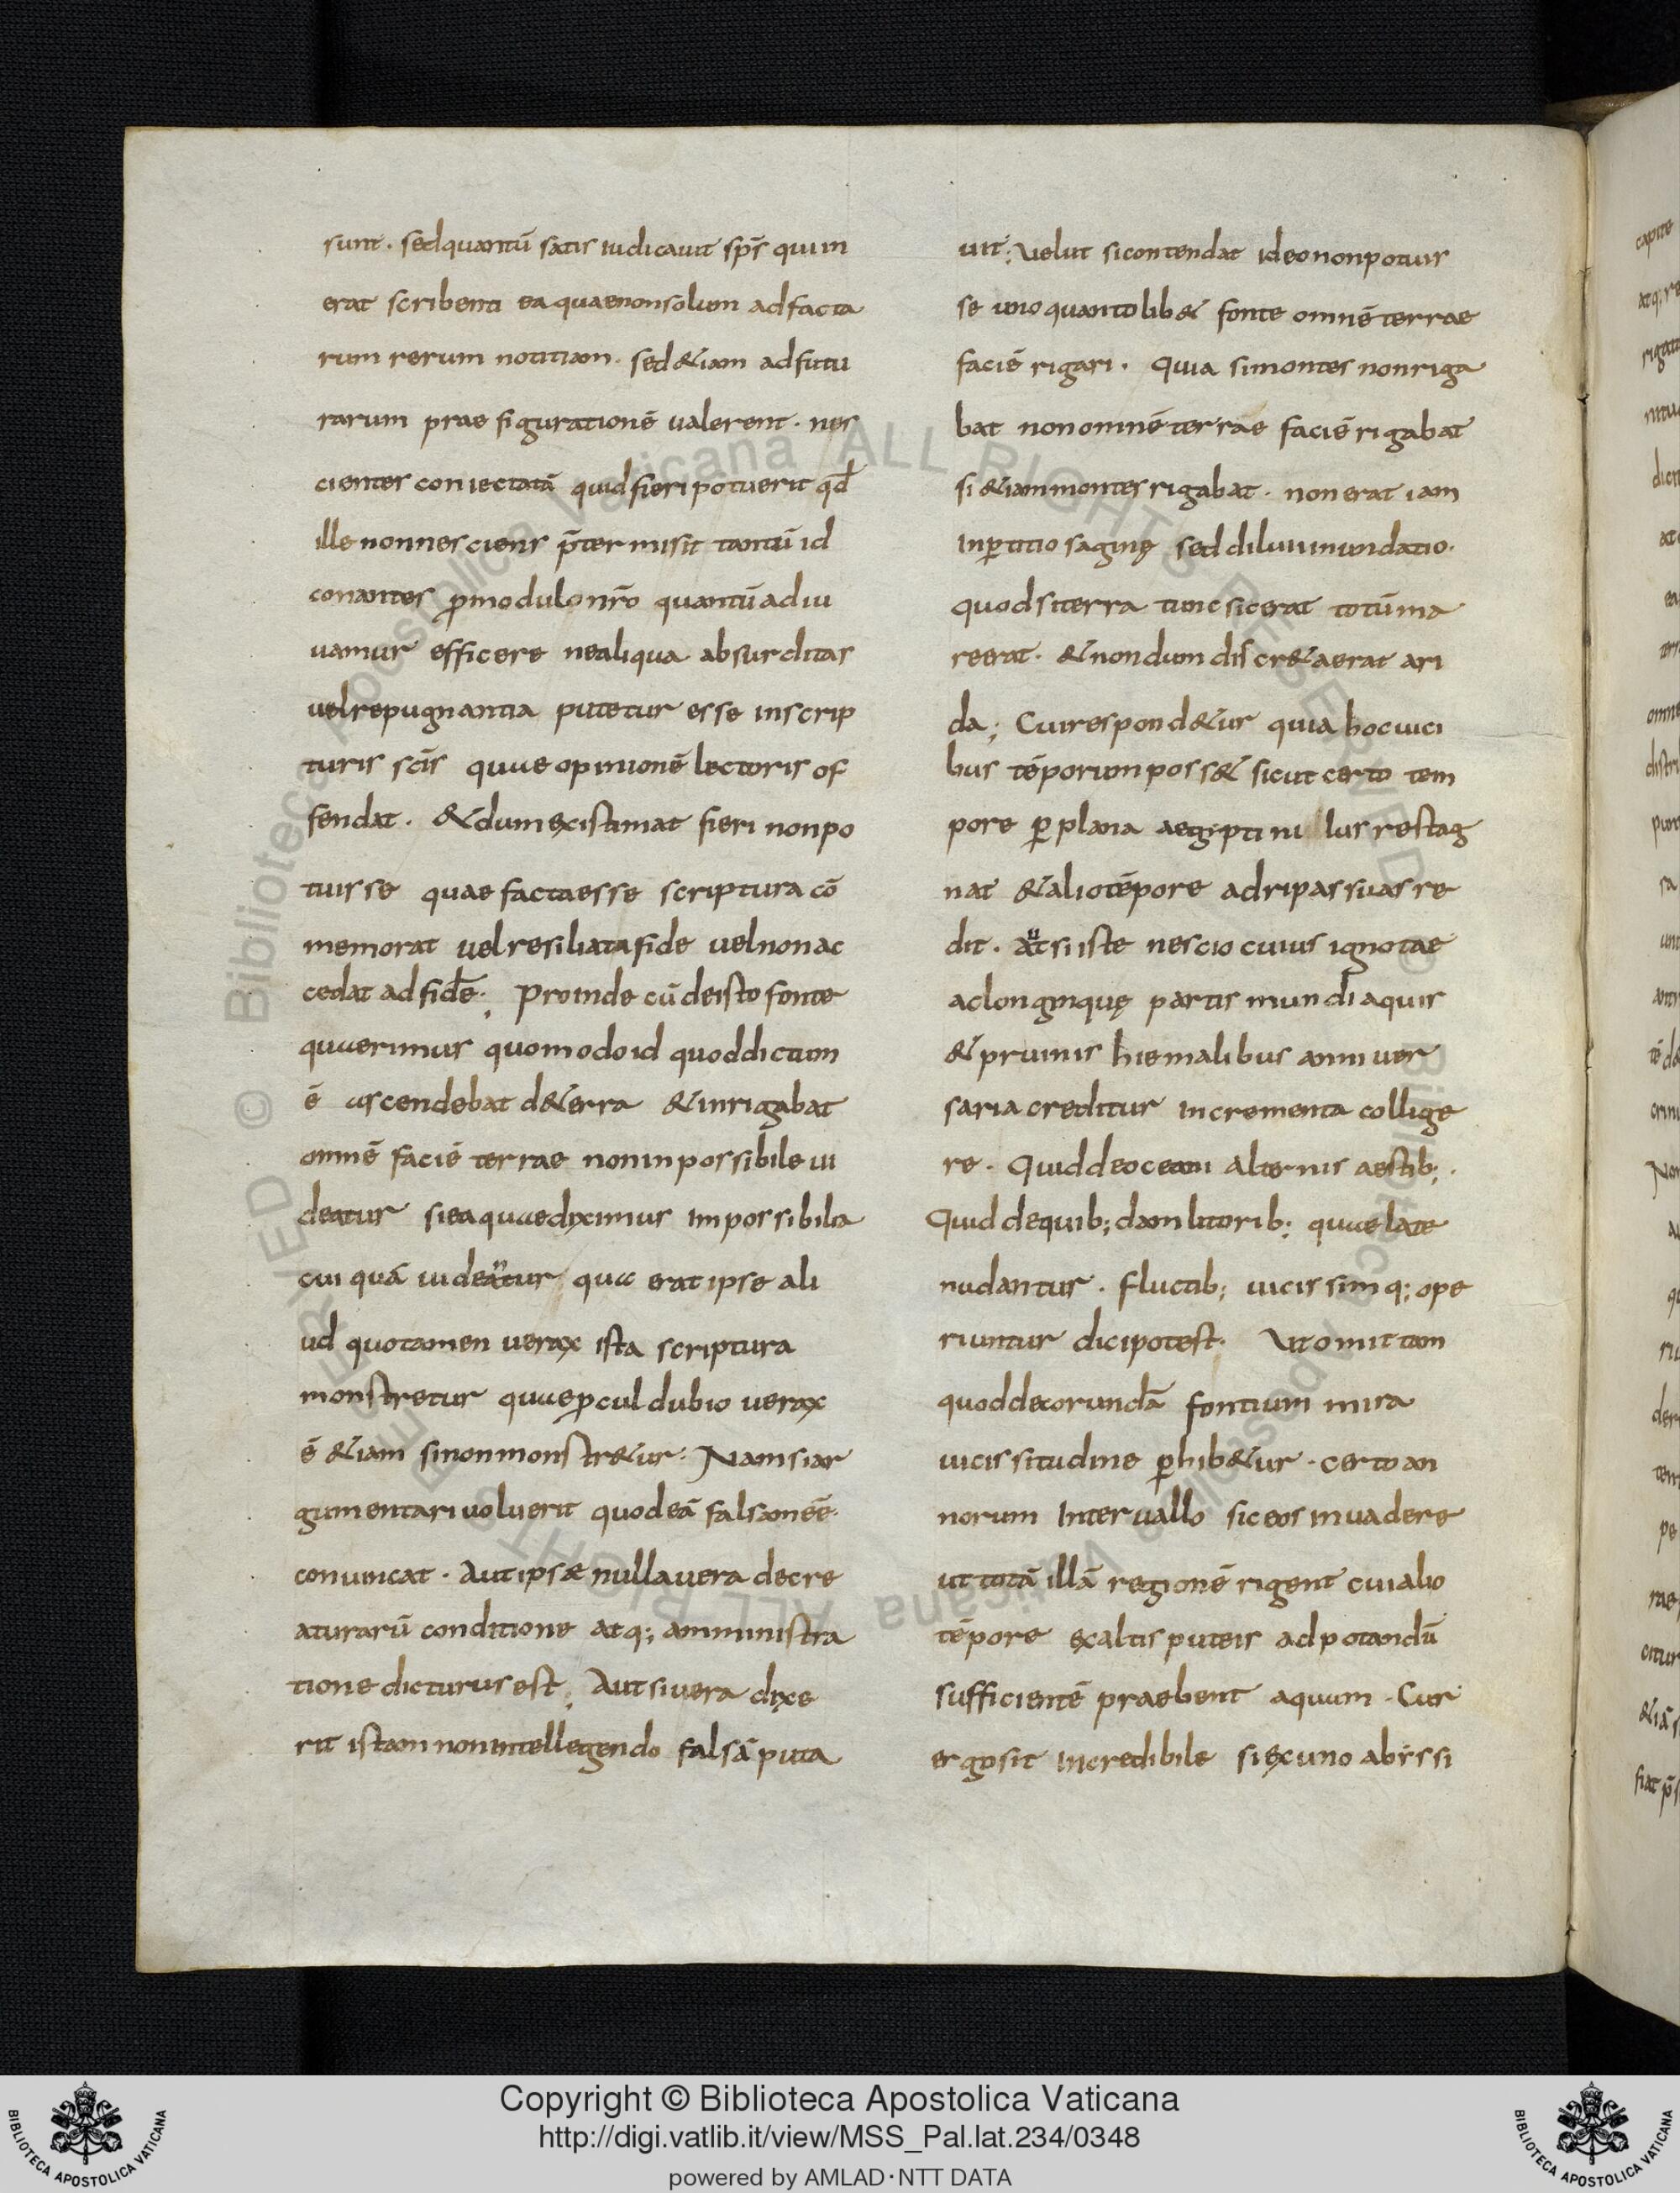 sunt · sedquantū satis iudicauit sp̄s quiin
erat scribenti ea quaenonsolum adfacta
rum rerum notitiam · sed&iam adfutu
rarum praefigurationē ualerent · nes
cientes coniectatā quidfieripotuerit qđ
ille nonnesciens p̄termisit tantū id
conantes ꝓmodulonr̄o quantūadiu
uamur efficere nealiqua absurditas
uelrepugnantia putetur esse inscrip
turis scīs quae opinionē lectoris of
fendat · &dum existimat fieri nonpo
tuisse quae factaesse scriptura cō
memorat uelresiliatafide uelnonac
cedat adfidē; Proinde cū deisto fonte
quaerimus quomodoid quoddictum
ē ascendebat d&erra &inrigabat
omnē faciē terrae noninpossibile ui
deatur sieaquaediximus impossibilia
cuiquā uideātur quaerat ipse ali
ud quotamen uerax ista scriptura
monstretur quaeꝓculdubio uerax
ē &iam sinonmonstr&ur · Namsiar
gumentari uoluerit quodeā falsameē
conuincat · Autips& nullauera decre
aturarū conditione atq; amministra
tione dicturusest; Aut siuera dixe
rit istam nonintellegendo falsā puta
uit; Uelut sicontendat ideononpotuis
se uno quantolib& fonte omnē terrae
faciē rigari · Quia simontes nonriga
bat nonomnē terrae faciē rigabat
si&iammontes rigabat · nonerat iam
inꝑtitio saginę sed diluuiinundatio ·
quodsiterra tuncsicerat totūma
reerat · &nondum discr&aerat ari
da; Cuirespond&ur quia hocuici
bus tēporumposs& sicut certo tem
pore ꝑ plana aegipti nillus restag
nat &aliotēpore adripassuasre
dit · aut siiste nescio cuius ignotae
aclonginquę partis mundi aquis
&pruinis hiemalibus anniuer
saria creditur incrementa collige
re · Quiddeoceani alternis aestib; ·
Quid dequib;dam litorib; quae late
nudantur · fluctib; uicissimq; ope
riuntur dicipotest · Utomittam
quoddeorundā fontium mira
uicissitudine ꝑhib&ur · certo an
norum Interuallo siceos inuadere
ut totā illā regionē rigent cuialio
tēpore exaltis puteis adpotandū
sufficientē praebent aquam · Cur
ergosit incredibile siexuno abissi
Copyright © Biblioteca Apostolica Vaticana
http://digi.vatlib.it/view/MSS_Pal.lat.234/0348
powered by AMLAD·NTT DATA
BIBLIOTECA APOSTOLICA VATICANA
BIBLIOTECA APOSTOLICA VATICANA